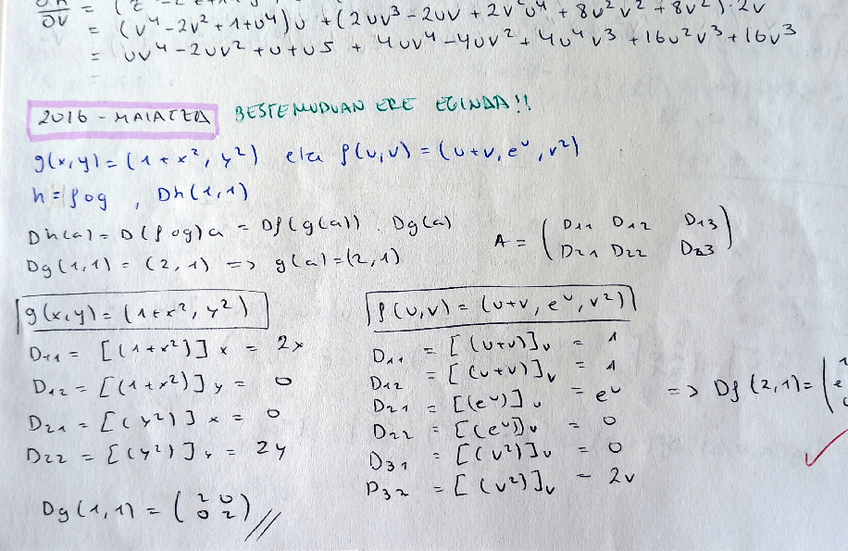 ∂h/∂v = (
= (v⁴-2v²+1+u⁴)u + (2uv³-2uv+2v²u⁴+8u²v²+8v²).2v
= uv⁴-2uv²+u+u5 + 4uv⁴-4uv²+4u⁴v³+16u²v³+16v³
=
2016 - MAIATZA BESTE MODUAN ERE EGINDA!!
g(x,y)=(1+x², y²) eta f(u,v)=(u+v, eᵘ, v²)
h=fog , Dh(1,1)
Dh(a)=D(fog)a = Df(g(a)) . Dg(a)
A = (D11 D12 D13
D21 D22 D23)
Dg(1,1) = (2,1) => g(a)=(2,1)
g(x,y)=(1+x², y²)
D11 = [(1+x²)]x = 2x
D12 = [(1+x²)]y = 0
D21 = [(y²)]x = 0
D22 = [(y²)]y = 2y
Dg(1,1) = (2 0
0 2)//
f(u,v)=(u+v, eᵘ, v²)
D11 = [(u+v)]u = 1
D12 = [(u+v)]v = 1
D21 = [(eᵘ)]u = eᵘ
D22 = [(eᵘ)]v = 0
D31 = [(v²)]u = 0
D32 = [(v²)]v = 2v
=> Df(2,1)=(